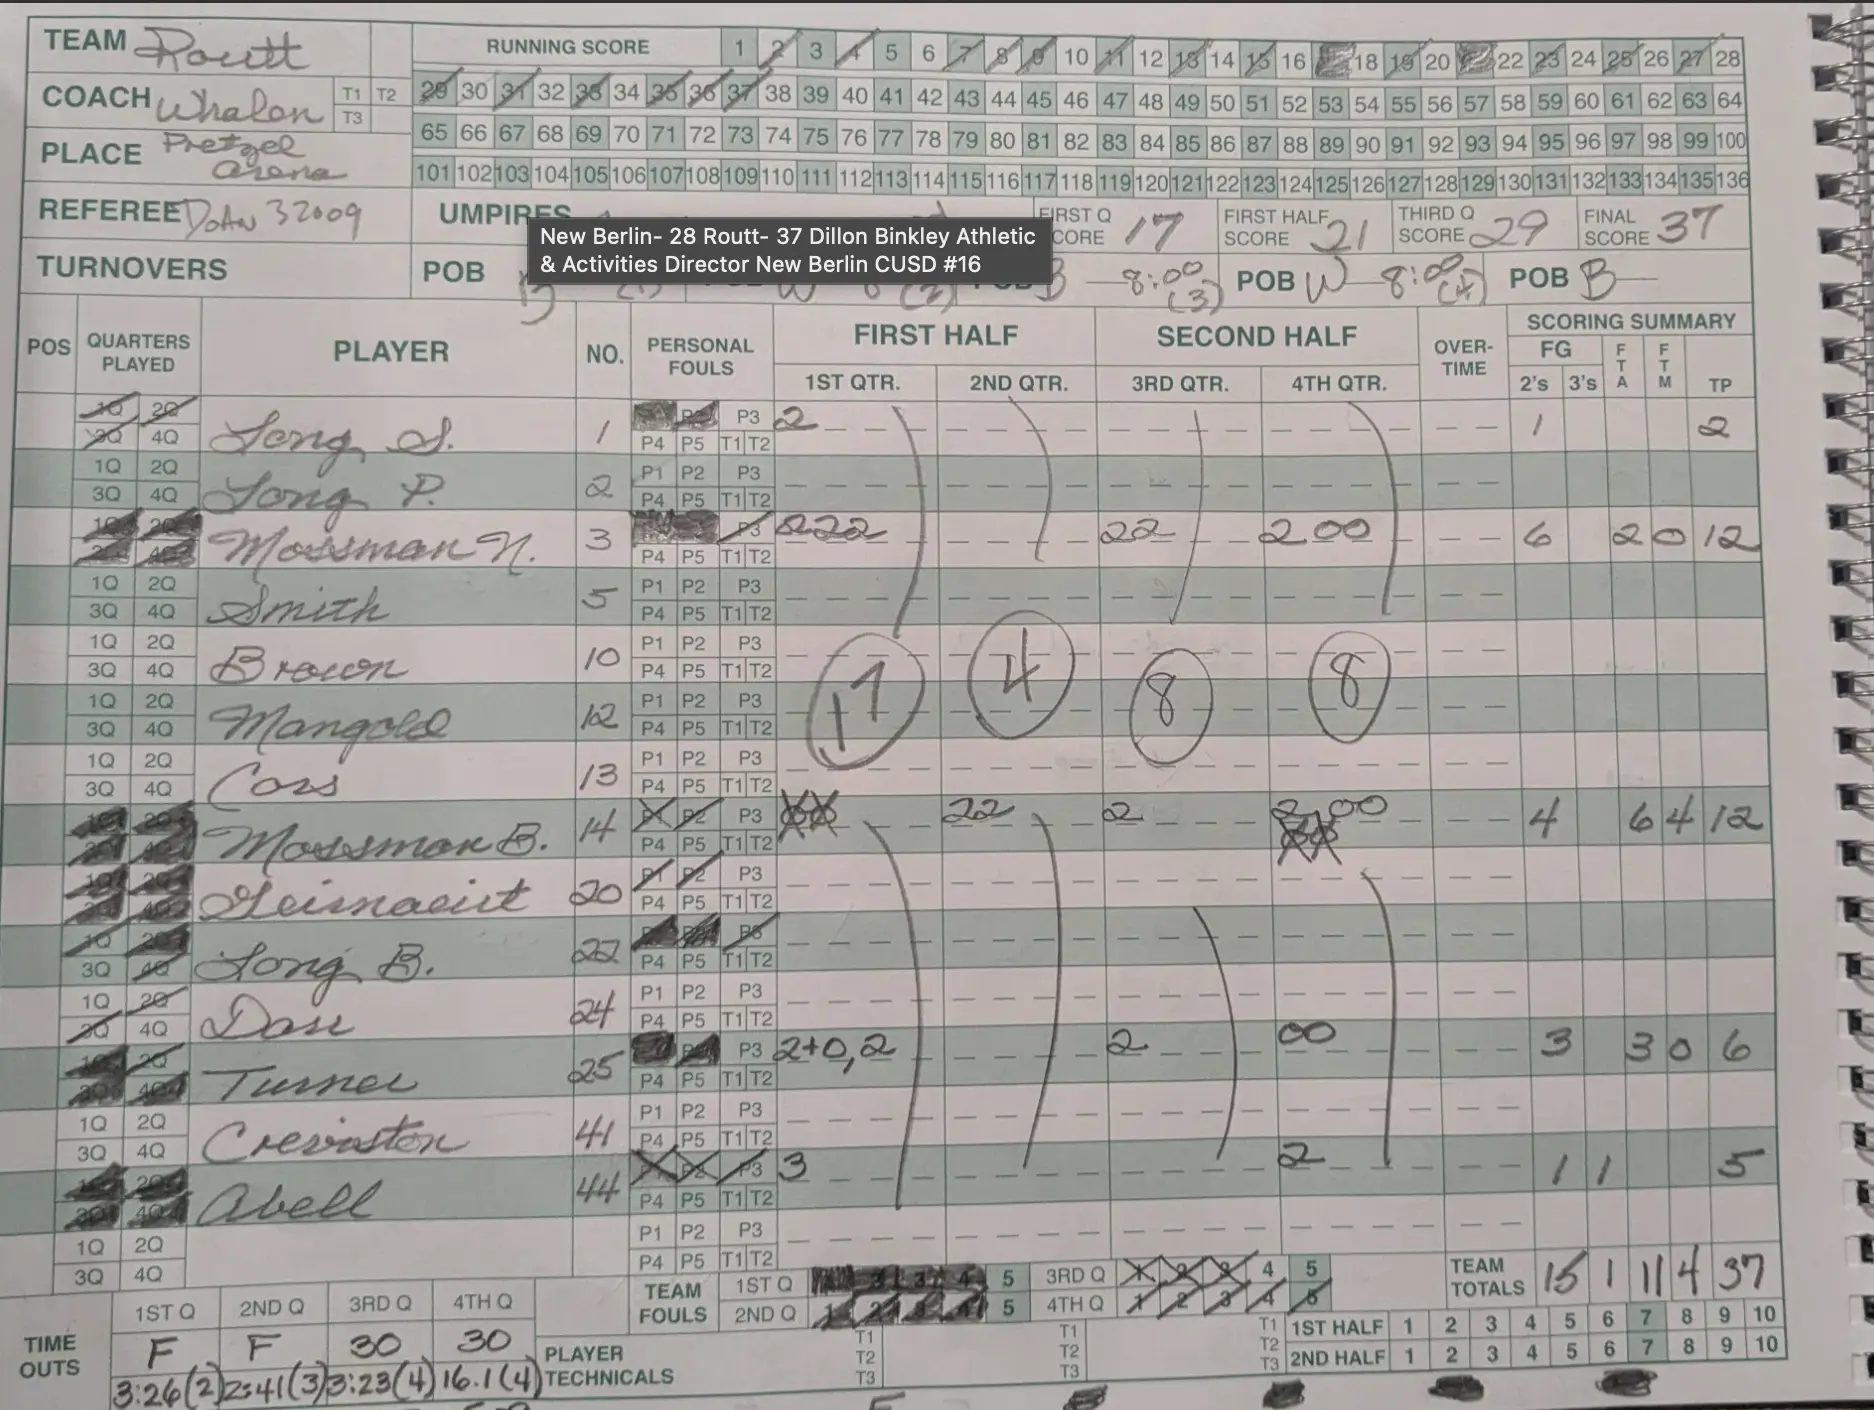 TEAM Routt
RUNNING SCORE 1 2 3 4 5 6 7 8 9 10 11 12 13 14 15 16 18 19 20 22 23 24 25 26 27 28
COACH Whalen T1 T2 T3
29 30 31 32 33 34 35 36 37 38 39 40 41 42 43 44 45 46 47 48 49 50 51 52 53 54 55 56 57 58 59 60 61 62 63 64
65 66 67 68 69 70 71 72 73 74 75 76 77 78 79 80 81 82 83 84 85 86 87 88 89 90 91 92 93 94 95 96 97 98 99 100
PLACE Pretzel Arena
101 102 103 104 105 106 107 108 109 110 111 112 113 114 115 116 117 118 119 120 121 122 123 124 125 126 127 128 129 130 131 132 133 134 135 136
REFEREE Doan 32009 UMPIRES
FIRST Q SCORE 17 FIRST HALF SCORE 21 THIRD Q SCORE 29 FINAL SCORE 37
New Berlin- 28 Routt- 37 Dillon Binkley Athletic
& Activities Director New Berlin CUSD #16
TURNOVERS POB B 8:00 (3) POB W 8:00 (4) POB B
POS QUARTERS PLAYED PLAYER NO. PERSONAL FOULS FIRST HALF SECOND HALF OVER-TIME SCORING SUMMARY
1ST QTR. 2ND QTR. 3RD QTR. 4TH QTR. FG 2's 3's FTA FTM TP
1Q 2Q 3Q 4Q Long, S. 1 P3 P4 P5 T1 T2 2 1 2
1Q 2Q 3Q 4Q Long P. 2 P1 P2 P3 P4 P5 T1 T2
Mossman N. 3 P3 P4 P5 T1 T2 222 22 200 6 2 0 12
1Q 2Q 3Q 4Q Smith 5 P1 P2 P3 P4 P5 T1 T2
1Q 2Q 3Q 4Q Brown 10 P1 P2 P3 P4 P5 T1 T2
17 4 8 8
1Q 2Q 3Q 4Q Mangold 12 P1 P2 P3 P4 P5 T1 T2
1Q 2Q 3Q 4Q Coss 13 P1 P2 P3 P4 P5 T1 T2
Mossman B. 14 P1 P2 P3 P4 P5 T1 T2 22 2 2,00 4 6 4 12
20 P1 P2 P3 P4 P5 T1 T2
1Q 2Q 3Q 4Q Long B. 22 P3 P4 P5 T1 T2
1Q 2Q 3Q 4Q 24 P1 P2 P3 P4 P5 T1 T2
Turner 25 P3 P4 P5 T1 T2 2+0,2 2 00 3 3 0 6
1Q 2Q 3Q 4Q Creviston 41 P1 P2 P3 P4 P5 T1 T2
Abell 44 P1 P2 P3 P4 P5 T1 T2 3 2 1 1 5
1Q 2Q 3Q 4Q P1 P2 P3 P4 P5 T1 T2
TEAM FOULS 1ST Q 2 3 4 5 3RD Q 1 2 3 4 5 TEAM TOTALS 15 1 11 4 37
2ND Q 1 2 3 4 5 4TH Q 1 2 3 4 5
TIME OUTS 1ST Q 2ND Q 3RD Q 4TH Q
F F 30 30
3:26(2) 2:41(3) 3:23(4) 16.1(4)
PLAYER TECHNICALS T1 T2 T3 T1 T2 T3 T1 T2 T3
1ST HALF 1 2 3 4 5 6 7 8 9 10
2ND HALF 1 2 3 4 5 6 7 8 9 10